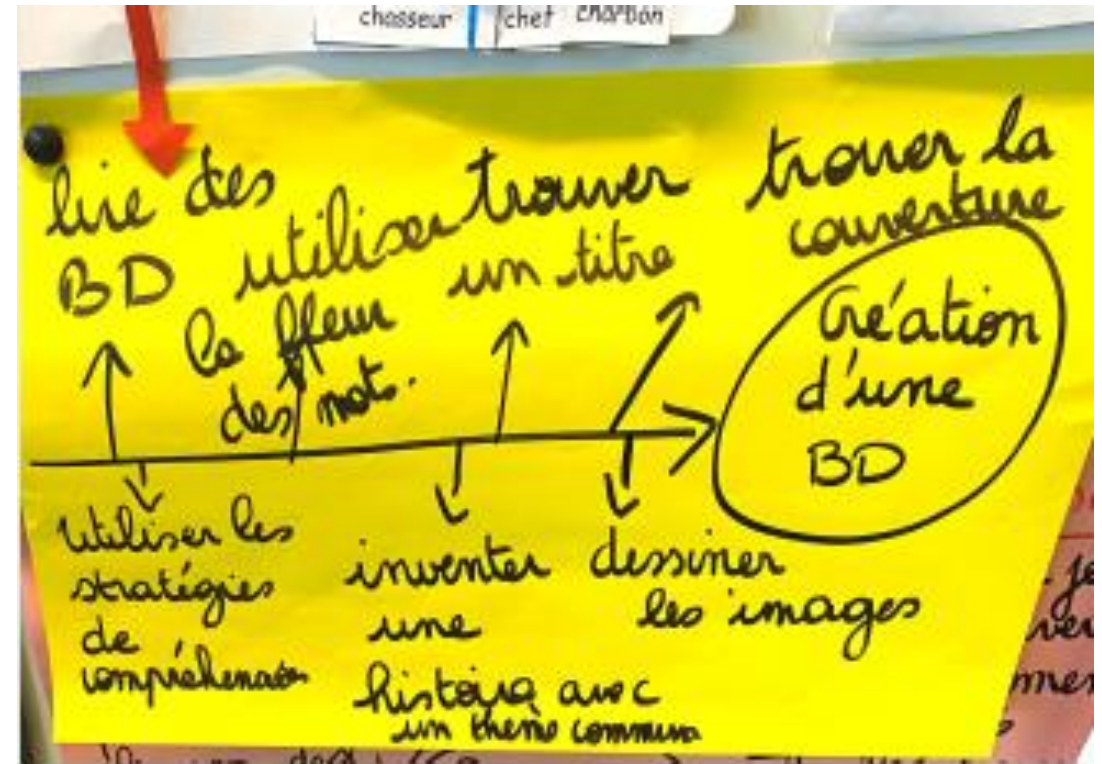 chasseur chef charbon
lire des
BD
utiliser
la fleur
des mots.
trouver
un titre
trouver la
couverture
Création
d'une
BD
Utiliser les
stratégies
de
compréhension
inventer
une
histoire avec
un thème commun
dessiner
les images